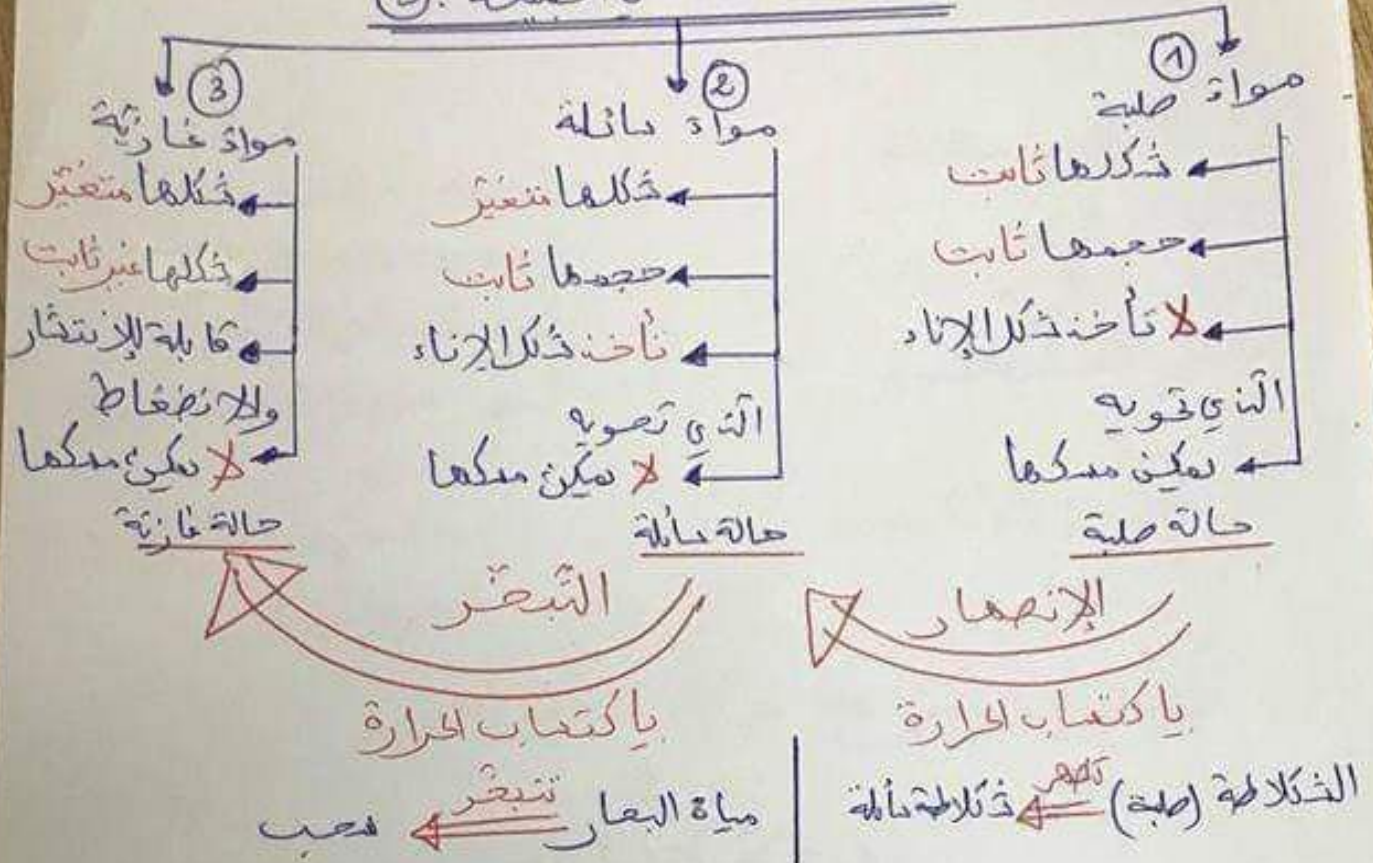 ①
مواد صلبة
شكلها ثابت
حجمها ثابت
لا تأخذ شكل الإناء
الّذي تحويه
يمكن مسكها
حالة صلبة
②
مواد سائلة
شكلها تتغيّر
حجمها ثابت
تأخذ شكل الإناء
الّذي تحويه
لا يمكن مسكها
حالة سائلة
③
مواد غازيّة
شكلها متغيّر
شكلها غير ثابت
قابلة للإنتشار
والانضغاط
لا يمكن مسكها
حالة غازيّة
الإنصهار
باكتساب الحرارة
التّبخّر
باكتساب الحرارة
الشكلاطة (صلبة) تنصهر شكلاطة سائلة
مياه البحار تتبخّر سحب